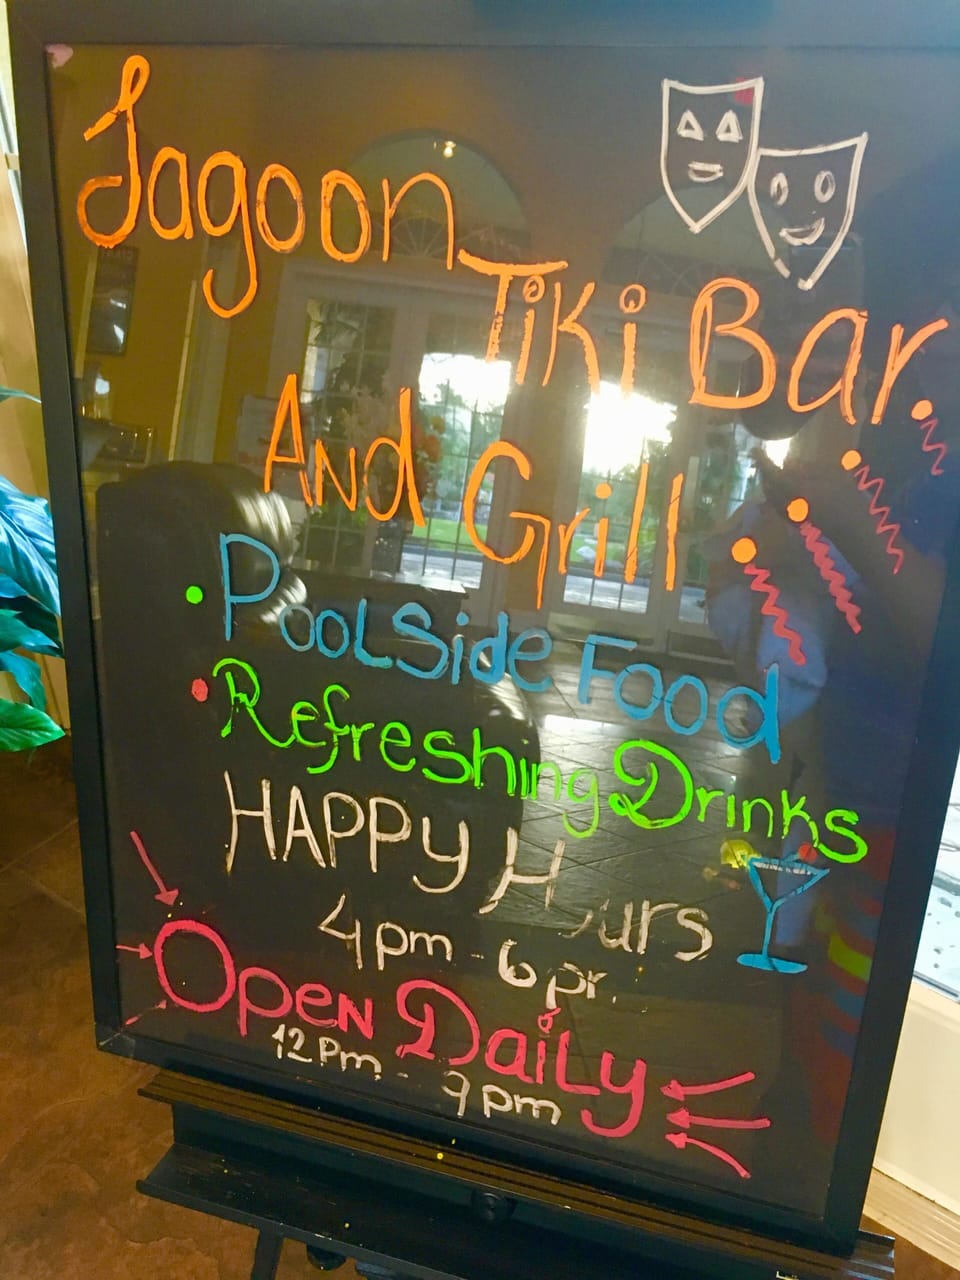 Lagoon
Tiki Bar
And Grill
Poolside Food
Refreshing Drinks
HAPPY Hurs
4pm - 6pr
Open Daily
12pm - 9pm